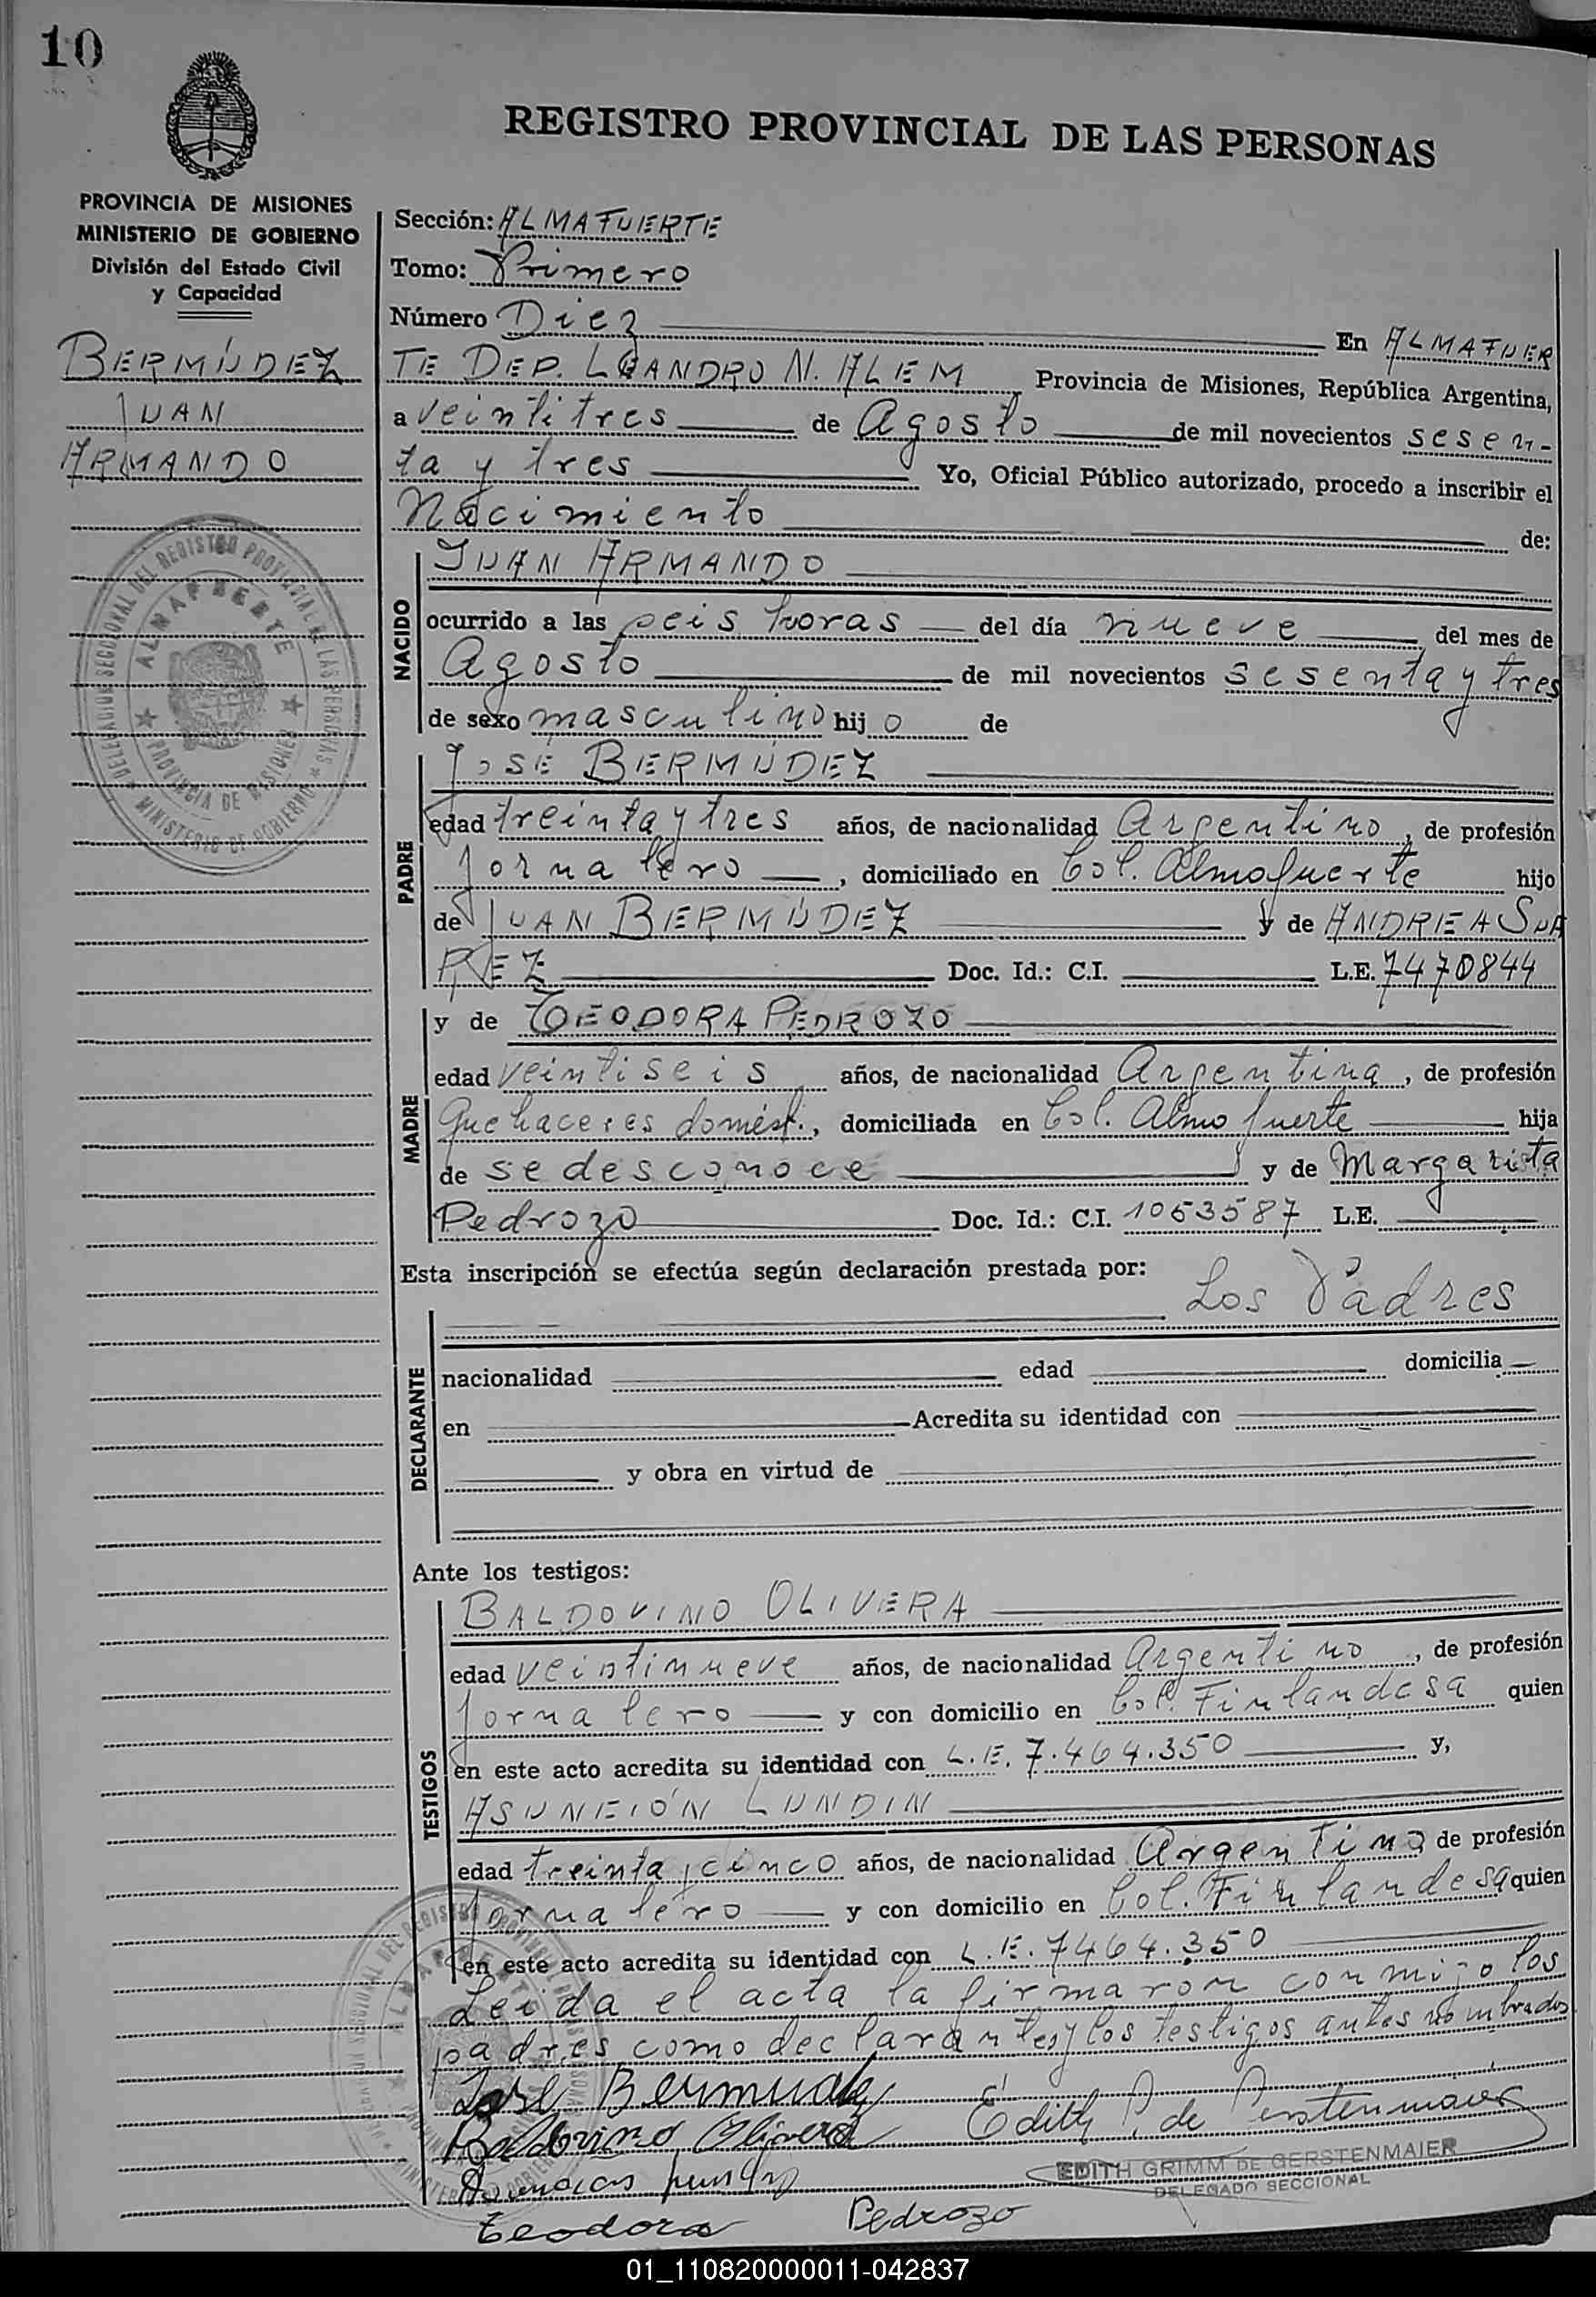 10
REGISTRO PROVINCIAL DE LAS PERSONAS
PROVINCIA DE MISIONES
MINISTERIO DE GOBIERNO
División del Estado Civil
y Capacidad
BERMÚDEZ
JUAN
ARMANDO
DELEGACION SECCIONAL DEL REGISTRO PROVINCIAL DE LAS PERSONAS
ALMAFUERTE
PROVINCIA DE MISIONES
MINISTERIO DE GOBIERNO
Sección: ALMAFUERTE
Tomo: Primero
Número Diez En ALMAFUER
TE DEP. LEANDRO N. ALEM Provincia de Misiones, República Argentina,
a veintitres de Agosto de mil novecientos sesen-
ta y tres Yo, Oficial Público autorizado, procedo a inscribir el
Nacimiento de:
NACIDO
JUAN ARMANDO
ocurrido a las seis horas del día nueve del mes de
Agosto de mil novecientos sesenta y tres
de sexo masculino hijo de
PADRE
José BERMÚDEZ
edad treinta y tres años, de nacionalidad Argentino, de profesión
Jornalero, domiciliado en Col. Almafuerte hijo
de JUAN BERMÚDEZ y de ANDREA SUA
REZ Doc. Id.: C.I. L.E. 7470844
MADRE
y de TEODORA PEDROZO
edad veintiseis años, de nacionalidad Argentina, de profesión
Quehaceres domést., domiciliada en Col. Almafuerte hija
de se desconoce y de Margarita
Pedrozo Doc. Id.: C.I. 1053587 L.E.
Esta inscripción se efectúa según declaración prestada por:
Los Padres
DECLARANTE
nacionalidad edad domicilia
en Acredita su identidad con
y obra en virtud de
Ante los testigos:
TESTIGOS
BALDOVINO OLIVERA
edad veintinueve años, de nacionalidad Argentino, de profesión
Jornalero y con domicilio en Col. Finlandesa quien
en este acto acredita su identidad con L.E. 7.464.350 y,
ASUNCIÓN LUNDIN
edad treinta y cinco años, de nacionalidad Argentina de profesión
Jornalero y con domicilio en Col. Finlandesa quien
en este acto acredita su identidad con L.E. 7464.350
Leida el acta la firmaron conmigo los
padres como declarantes y los testigos antes nombrados
José Bermudez
Baldovino Olivera
Edith G. de Gerstenmaier
EDITH GRIMM DE GERSTENMAIER
DELEGADO SECCIONAL
Teodora Pedrozo
01_110820000011-042837